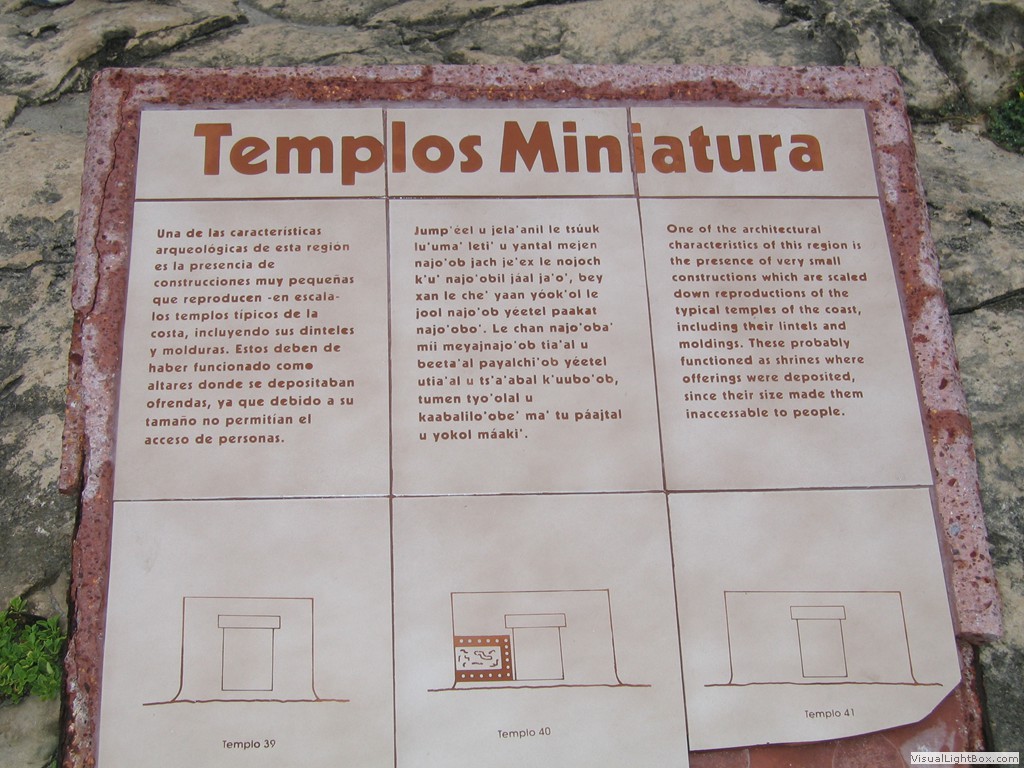 Templos Miniatura
Una de las características
arqueológicas de esta región
es la presencia de
construcciones muy pequeñas
que reproducen -en escala-
los templos típicos de la
costa, incluyendo sus dinteles
y molduras. Estos deben de
haber funcionado como
altares donde se depositaban
ofrendas, ya que debido a su
tamaño no permitían el
acceso de personas.
Jump'éel u jela'anil le tsúuk
lu'uma' leti' u yantal mejen
najo'ob jach je'ex le nojoch
k'u' najo'obil jáal ja'o', bey
xan le che' yaan yóok'ol le
jool najo'ob yéetel paakat
najo'obo'. Le chan najo'oba'
mii meyajnajo'ob tia'al u
beeta'al payalchi'ob yéetel
utia'al u ts'a'abal k'uubo'ob,
tumen tyo'olal u
kaabalilo'obe' ma' tu páajtal
u yokol máaki'.
One of the architectural
characteristics of this region is
the presence of very small
constructions which are scaled
down reproductions of the
typical temples of the coast,
including their lintels and
moldings. These probably
functioned as shrines where
offerings were deposited,
since their size made them
inaccessable to people.
Templo 39
Templo 40
Templo 41
VisualLightBox.com